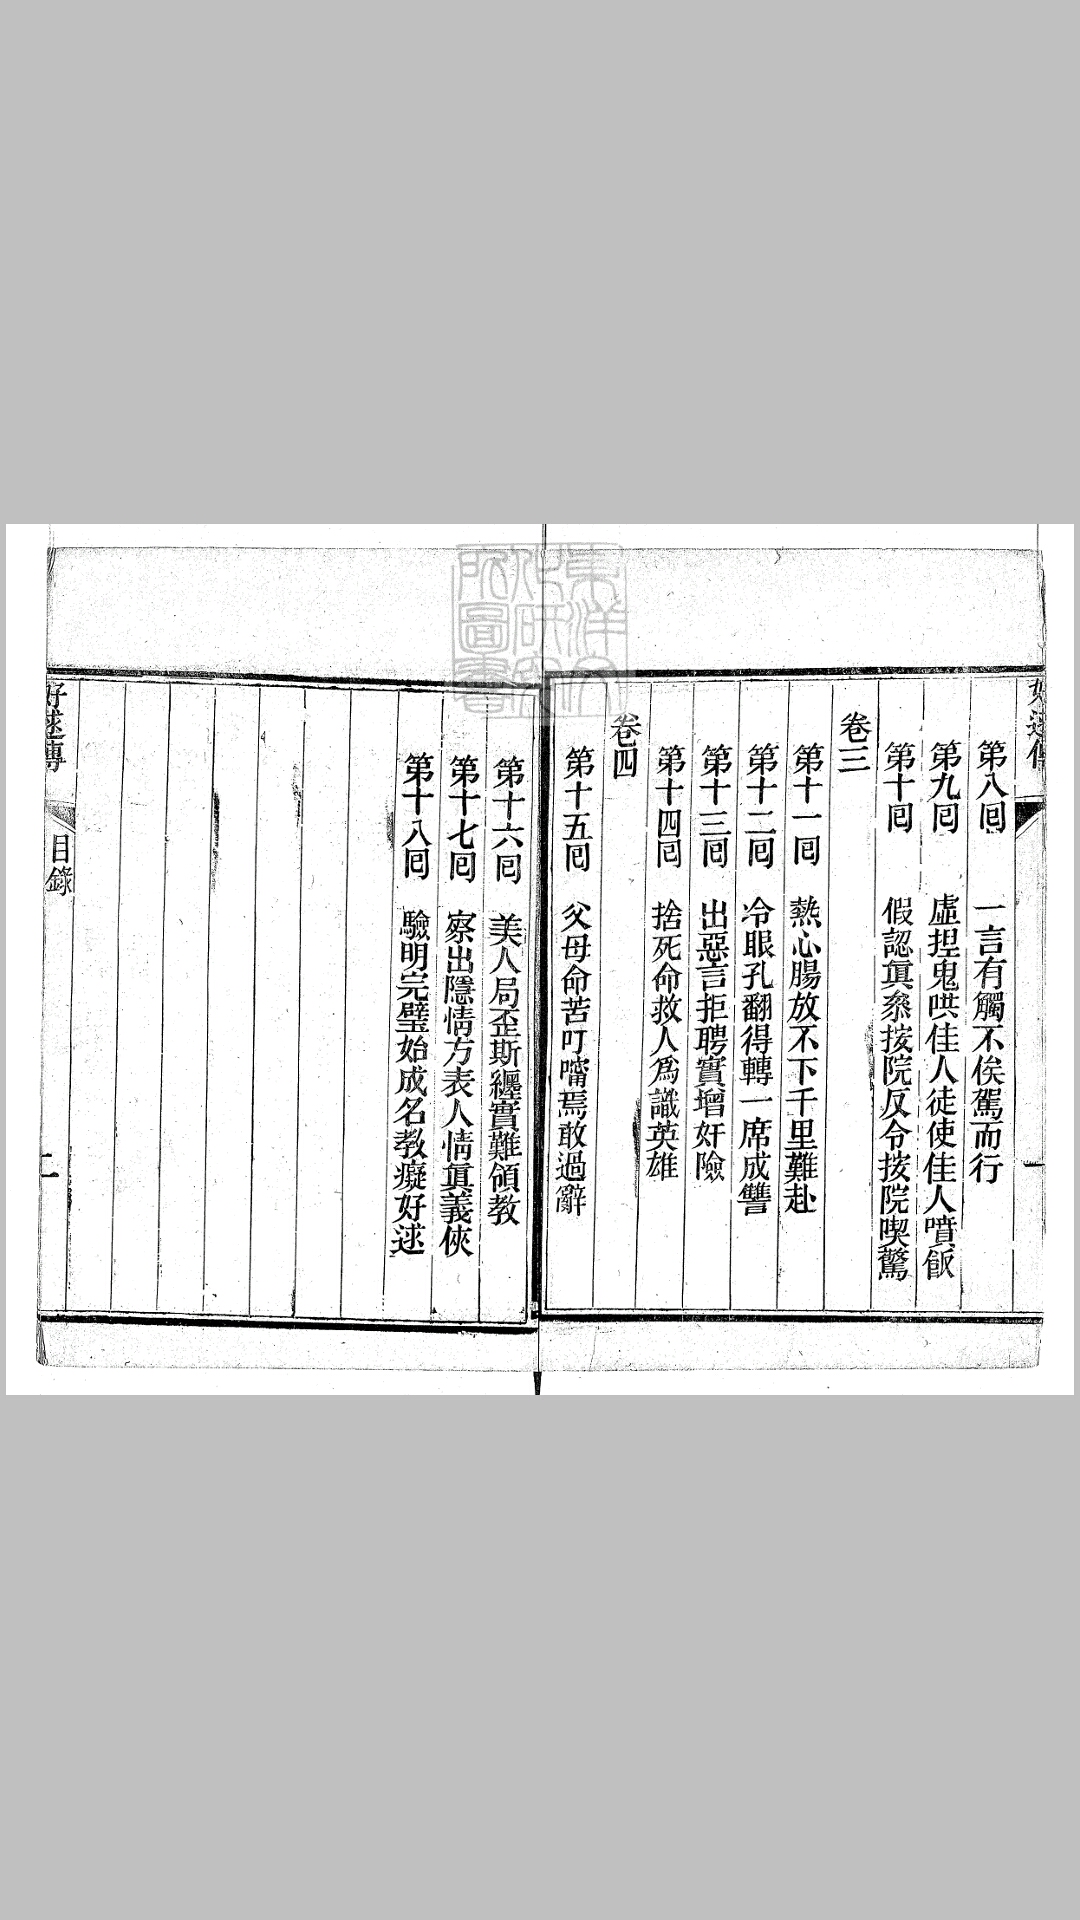 好逑傳
第八囘　一言有觸不俟駕而行
第九囘　虛揑鬼哄佳人徒使佳人噴飯
第十囘　假認眞叅按院反令按院喫驚
卷三
第十一囘　熱心腸放不下千里難赴
第十二囘　冷眼孔翻得轉一席成讐
第十三囘　出惡言拒聘實增奸險
第十四囘　捨死命救人爲識英雄
卷四
第十五囘　父母命苦叮嚀焉敢過辭
第十六囘　美人局歪斯纏實難領教
第十七囘　察出隱情方表人情眞義俠
第十八囘　驗明完璧始成名教癡好逑
好逑傳
目錄
二
東洋文
化研究
所圖書